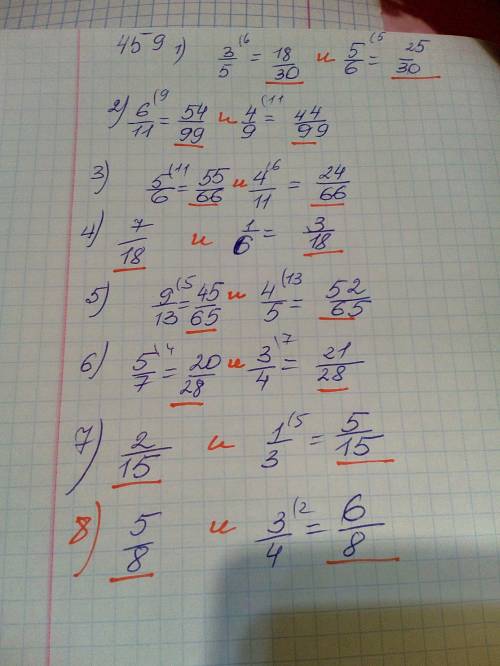 459 1) 3/5 (6 = 18/30 и 5/6 (5 = 25/30
2) 6/11 (9 = 54/99 и 4/9 (11 = 44/99
3) 5/6 (11 = 55/66 и 4/11 (6 = 24/66
4) 7/18 и 1/6 = 3/18
5) 9/13 (5 = 45/65 и 4/5 (13 = 52/65
6) 5/7 \4 = 20/28 и 3/4 \7 = 21/28
7) 2/15 и 1/3 (5 = 5/15
8) 5/8 и 3/4 (2 = 6/8